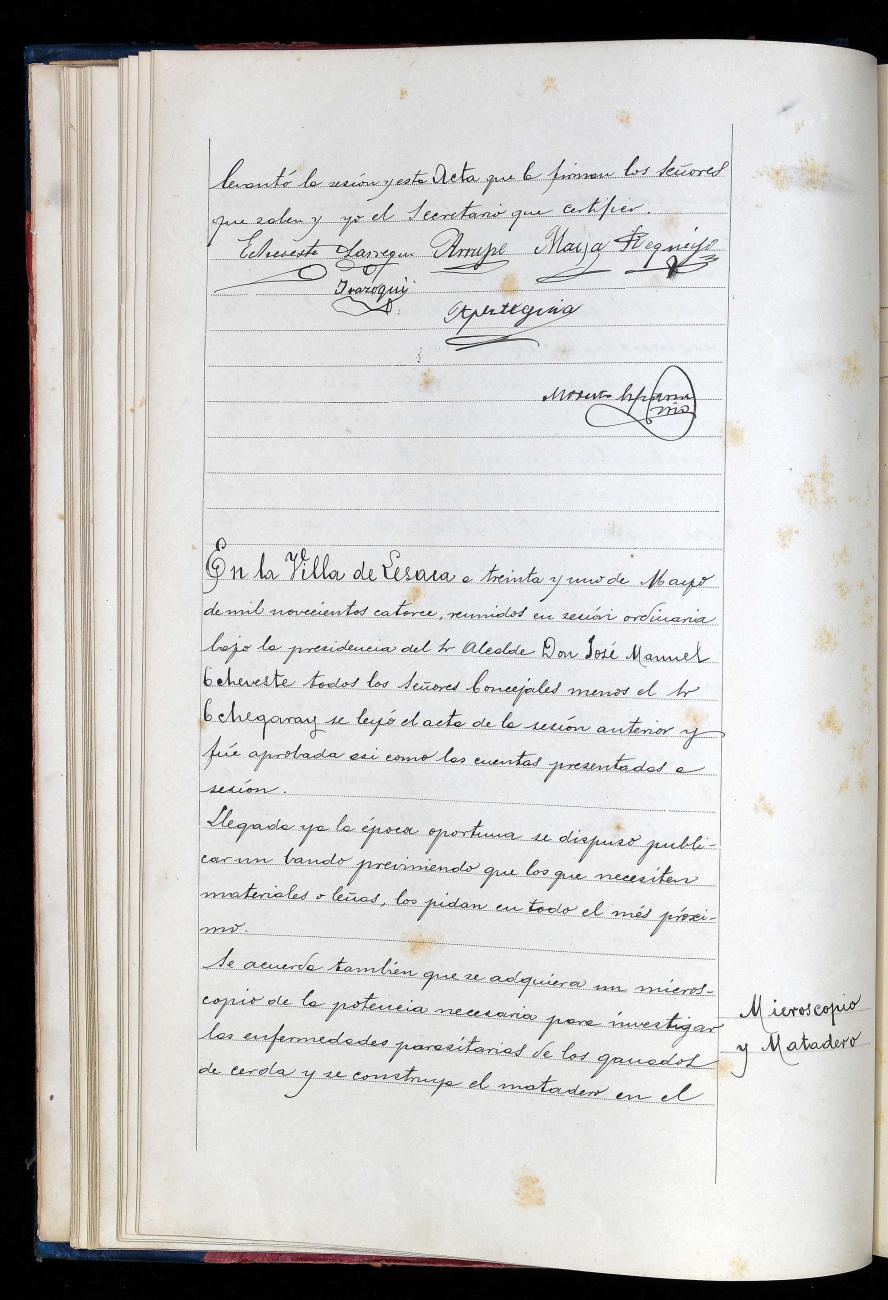 levantó la sesión y esta Acta que la firman los Señores
que saben y yo el Secretario que certifico.
Echeveste Larregui Arrupe Maya Requejo
Irazoqui
Apesteguia
En la Villa de Lesaca a treinta y uno de Mayo
de mil novecientos catorce, reunidos en sesión ordinaria
bajo la presidencia del Sr Alcalde Don José Manuel
Echeveste todos los Señores Concejales menos el Sr
Echegaray se leyó el acta de la sesión anterior y
fué aprobada asi como las cuentas presentadas a
sesión.
Llegada ya la época oportuna se dispuso publi-
car un bando previniendo que los que necesiten
materiales o leñas, los pidan en todo el més próxi-
mo.
Se acuerda también que se adquiera un micros-
copio de la potencia necesaria para investigar
las enfermedades parasitarias de los ganados
de cerda y se construya el matadero en el
Microscopio
y Matadero